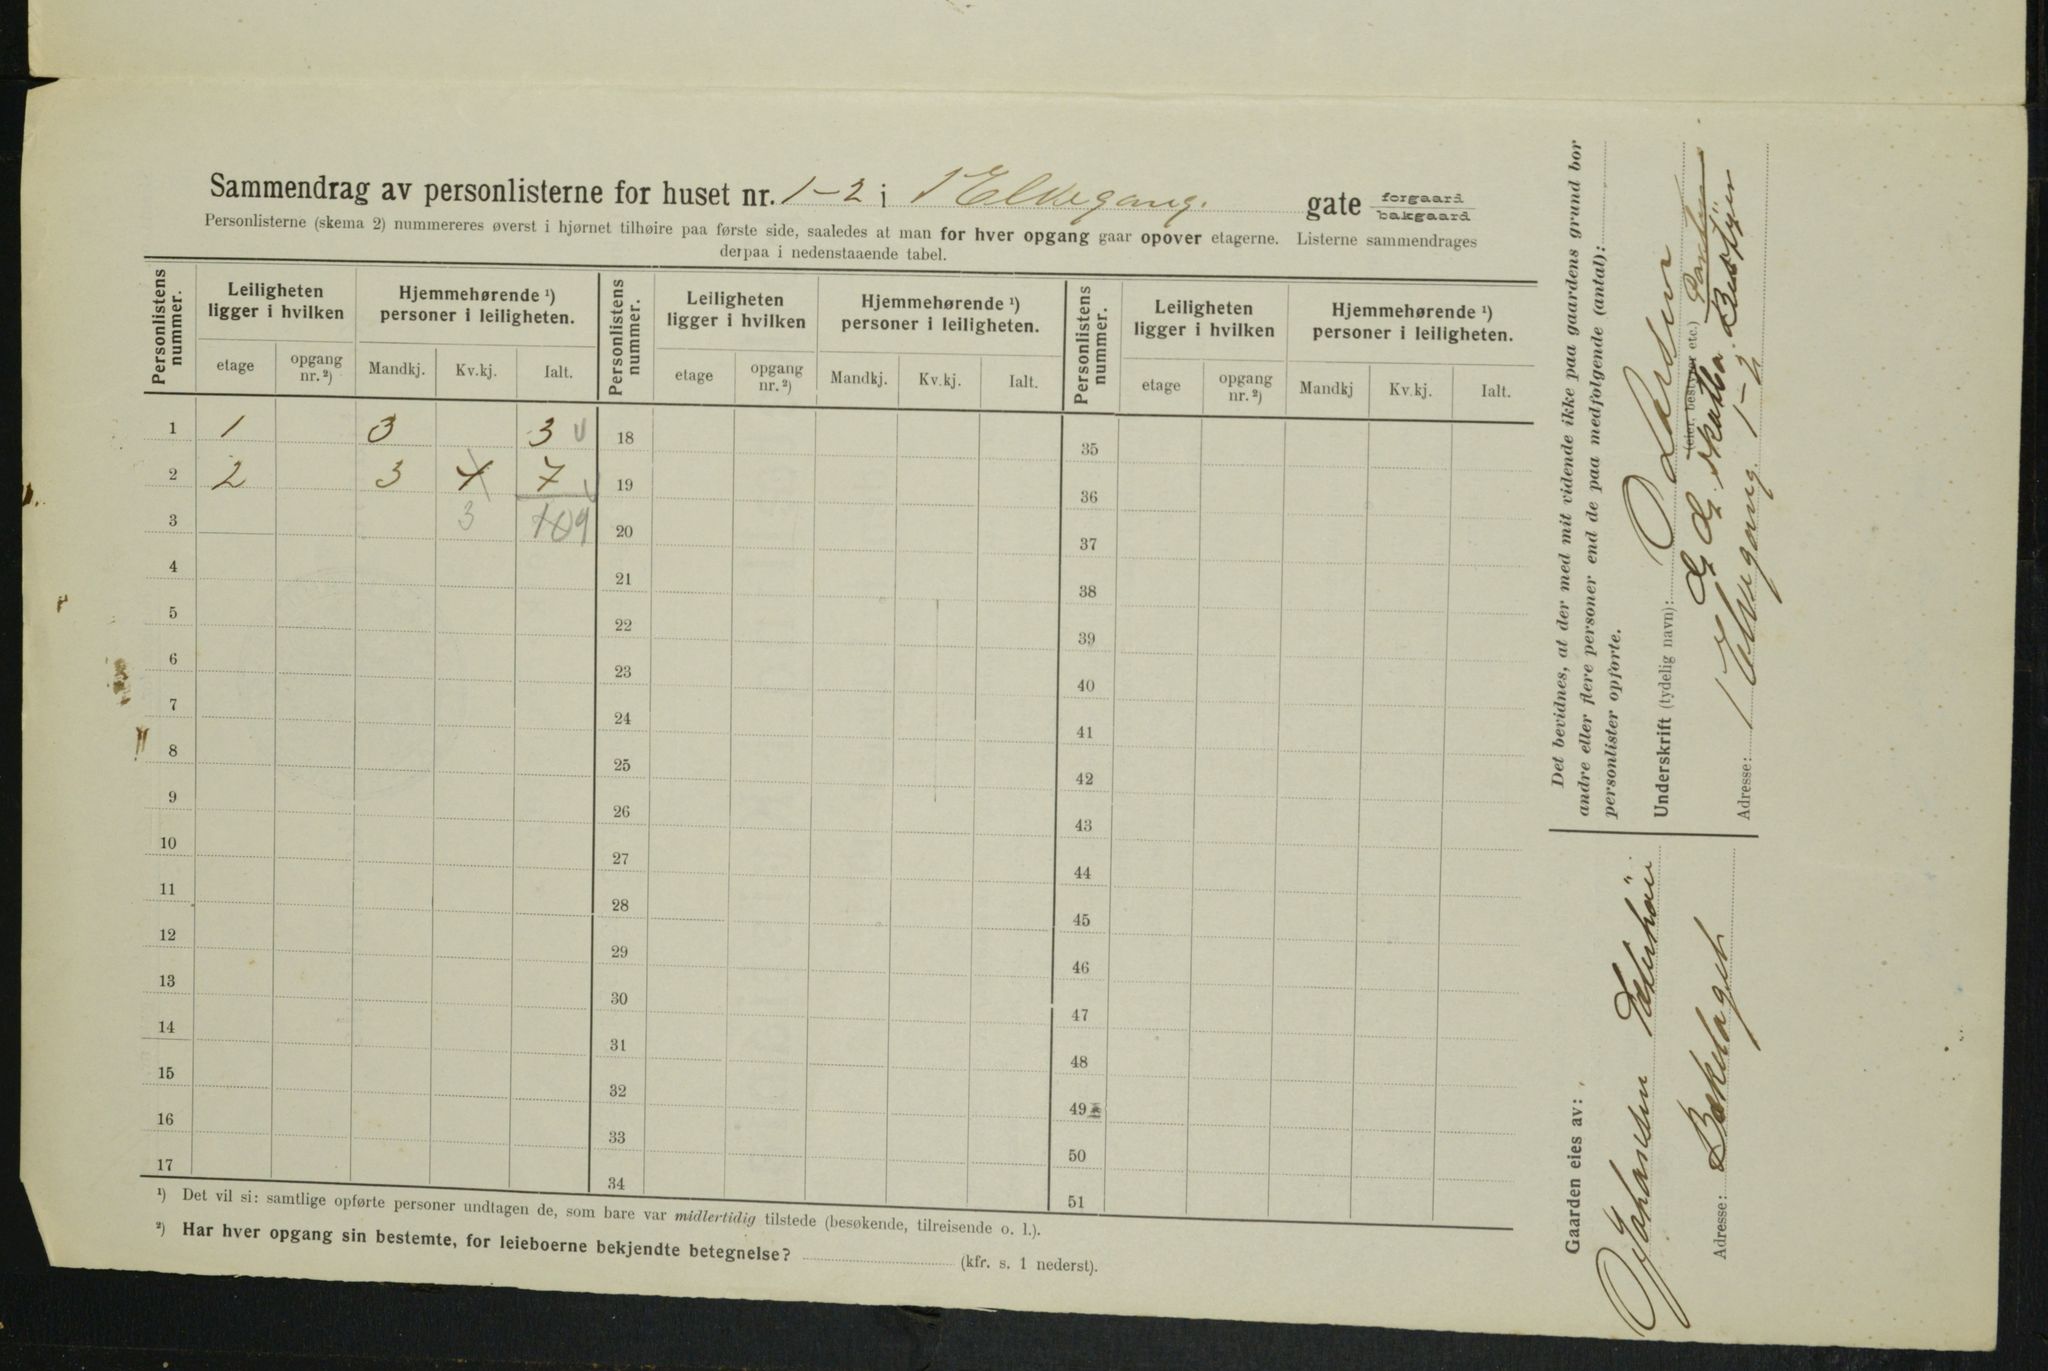 Sammendrag av personlisterne for huset nr. 1-2 i Elvegang. gate forgaard bakgaard
Personlisterne (skema 2) nummereres øverst i hjørnet tilhøire paa første side, saaledes at man for hver opgang gaar opover etagerne. Listerne sammendrages
derpaa i nedenstaaende tabel.
Personlistens nummer. Leiligheten ligger i hvilken Hjemmehørende ¹) personer i leiligheten. Personlistens nummer. Leiligheten ligger i hvilken Hjemmehørende ¹) personer i leiligheten. Personlistens nummer. Leiligheten ligger i hvilken Hjemmehørende ¹) personer i leiligheten.
etage opgang nr. ²) Mandkj. Kv.kj. Ialt. etage opgang nr. ²) Mandkj. Kv.kj. Ialt. etage opgang nr. ²) Mandkj Kv.kj. Ialt.
1 1 3 3 18 35
2 2 3 4 7 19 36
3 3 10 9 20 37
4 21 38
5 22 39
6 23 40
7 24 41
8 25 42
9 26 43
10 27 44
11 28 45
12 29 46
13 30 47
14 31 48
15 32 49
16 33 50
17 34 51
¹) Det vil si: samtlige opførte personer undtagen de, som bare var midlertidig tilstede (besøkende, tilreisende o. l.).
²) Har hver opgang sin bestemte, for leieboerne bekjendte betegnelse? (kfr. s. 1 nederst).
Det bevidnes, at der med mit vidende ikke paa gaardens grund bor
andre eller flere personer end de paa medfølgende (antal):
personlister opførte.
Underskrift (tydelig navn):
(eier, bestyrer etc.)
Bestyrer
Adresse: Elvegang. 1-2
Gaarden eies av:
Johansen
Adresse: Bækelaget